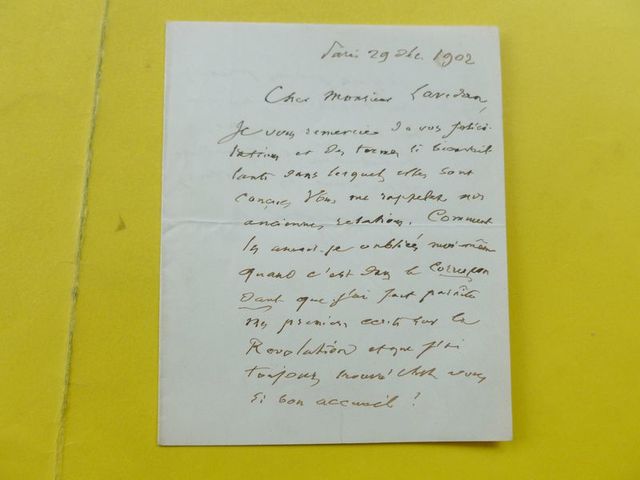 Paris 29 Déc. 1902
Cher Monsieur Lavedan,
Je vous remercie de vos félici-
tations et des termes si bienveil
lants dans lesquels elles sont
conçues. Vous me rappelez nos
anciennes relations. Comment
les aurais-je oubliées moi-même
quand c'est dans le Correspon
dant que j'ai fait paraître
mes premiers écrits sur la
Révolution et que j'ai
toujours trouvé chez vous
si bon accueil !